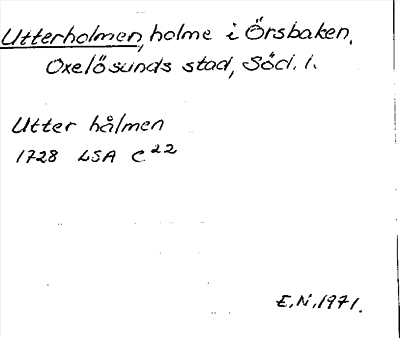 Utterholmen, holme i Örsbaken.
Oxelösunds stad, Söd. l.
Utter hålmen
1728 LSA C²²
E.N. 1971.